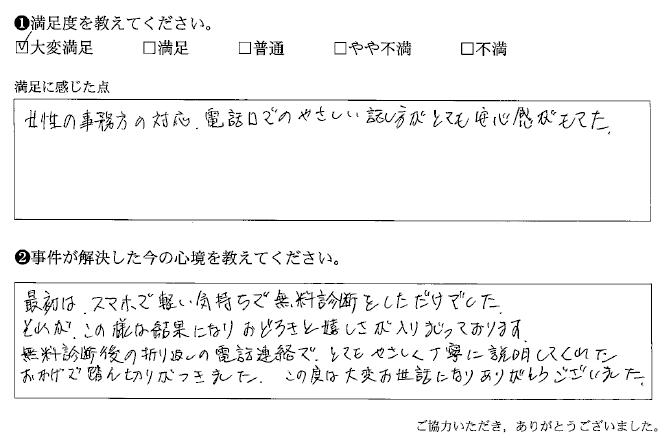 ❶満足度を教えてください。
☑大変満足 □満足 □普通 □やや不満 □不満
満足に感じた点
女性の事務方の対応、電話口でのやさしい話し方がとても安心感がもてた。
❷事件が解決した今の心境を教えてください。
最初は、スマホで軽い気持ちで無料診断をしただけでした。
それが、この様な結果になりおどろきと嬉しさが入りまじっております。
無料診断後の折り返しの電話連絡で、とてもやさしく丁寧に説明してくれた
おかげで踏ん切りがつきました。 この度は大変お世話になりありがとうございました。
ご協力いただき，ありがとうございました。